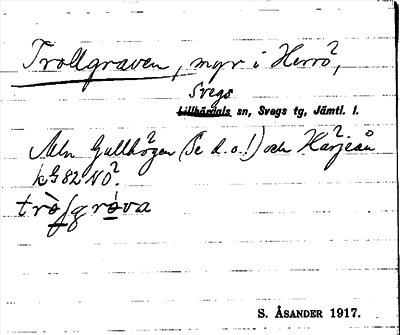 Trollgraven, myr i Herrö,
Svegs
Lillhärdals sn, Svegs tg, Jämtl. l.
Mln Gullhögen (Se d. o.!) och Härjeån
kG82NO.
S. ÅSANDER 1917.